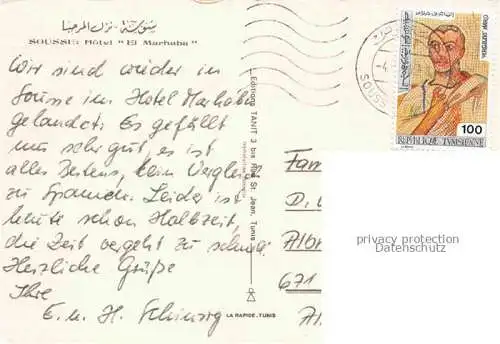 سوسة - نزل المرحبا
SOUSSE: Hôtel "El Marhaba"
Wir sind wieder in
Sousse im Hotel Marhaba
gelandet. Es gefällt
uns sehr gut, es ist
alles Bestens, kein Vergleich
zu Spanien. Leider ist
heute schon Halbzeit,
die Zeit vergeht zu schnell
Herzliche Grüße
Ihre
E. u. H.
Editions TANIT 3 bis Rue St. Jean, Tunis
LA RAPIDE. TUNIS
100
REPUBLIQUE TUNISIENNE
Fam
D.
Albr
671
privacy protection
Datenschutz